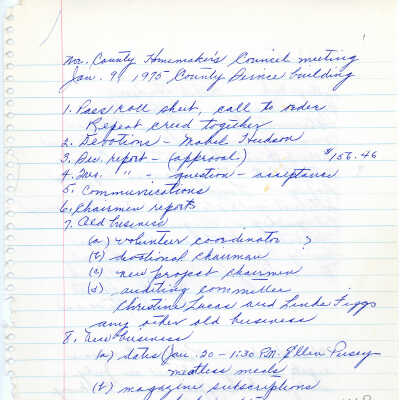 Wor. County Homemaker's Council meeting
Jan. 9, 1975 County Service building
1. Pass roll sheet, call to order
Repeat creed together
2. Devotions - Mabel Hudson
3. Sec. report - (approval) $156.46
4. Tres. " - question - acceptance
5. Communications
6. Chairmen reports
7. Old business
(a) volunteer coordinator ?
(b) devotional chairman
(c) new project chairmen
(d) auditing committee
Christine Lucas and Linda Figgs
any other old business
8. New business
(a) dates (Jan. 20 - 1:30 P.M. Ellen Pusey
meatless meals
(b) magazine subscriptions